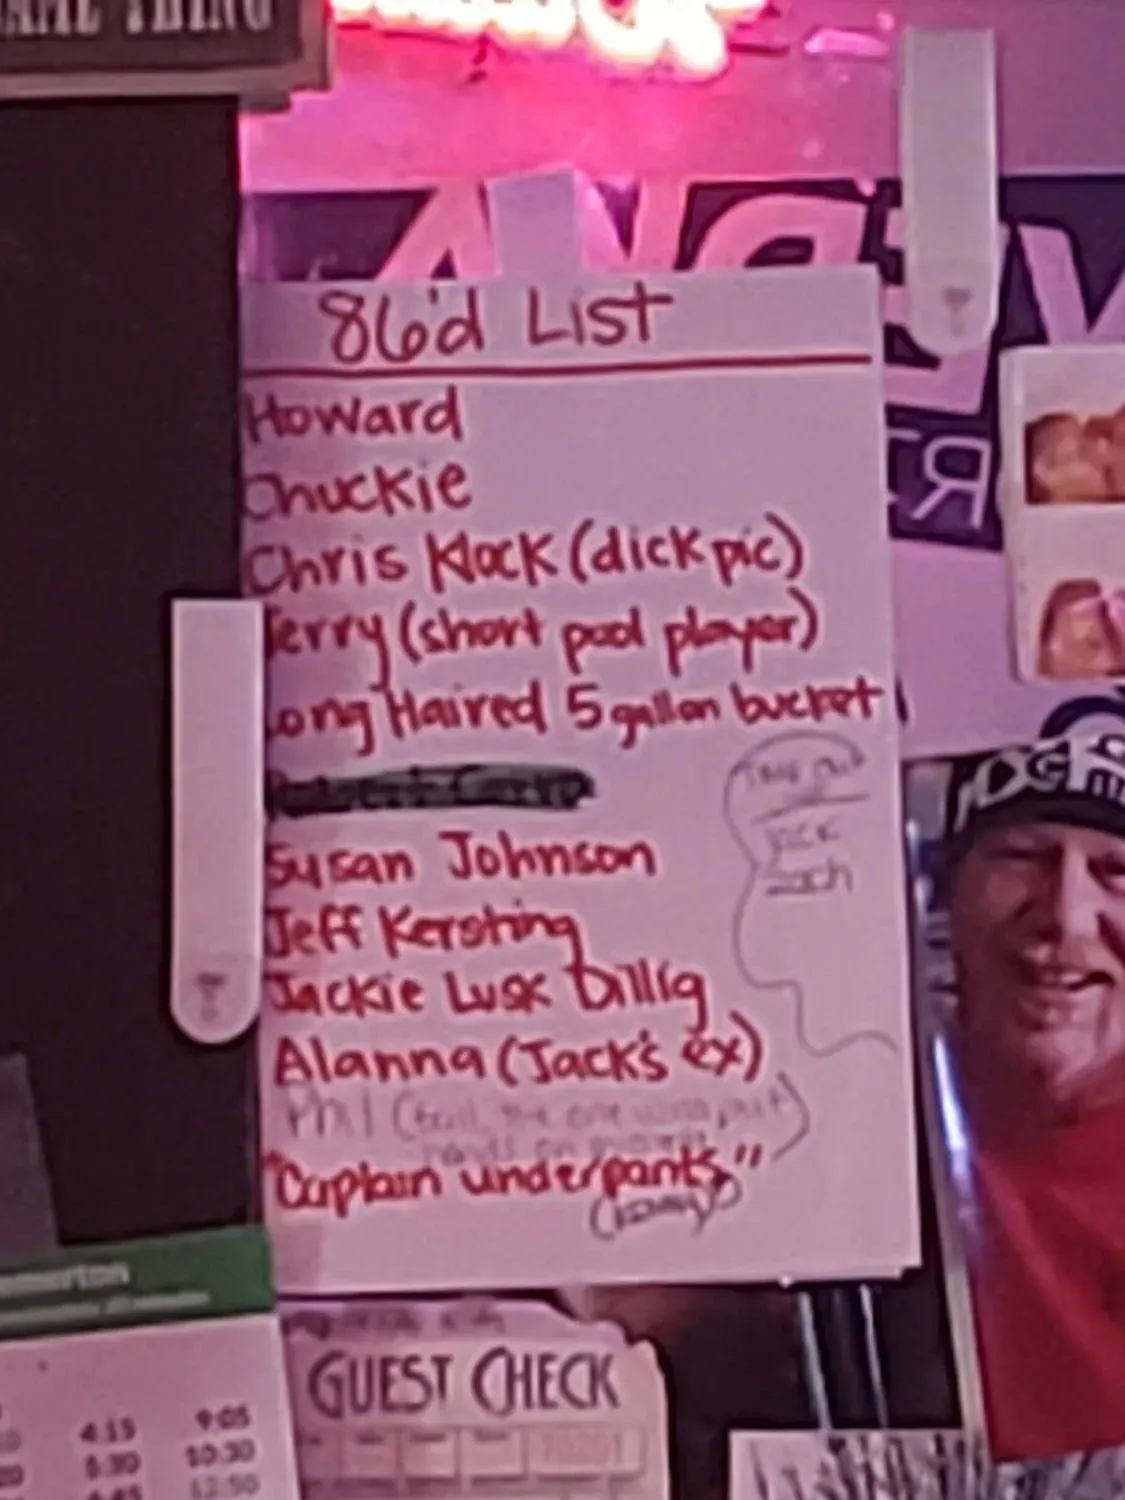 AME THING
86'd List
Howard
Chuckie
Chris Klock (dick pic)
Terry (short pool player)
Long Haired 5 gallon bucket
Susan Johnson
Jeff Kersting
Jackie Lusk Dillig
Alanna (Jack's ex)
Phil (tall, the one who put
hands on
"Captain underpants"
GUEST CHECK
4:15 9:05
5:30 10:30
12:50